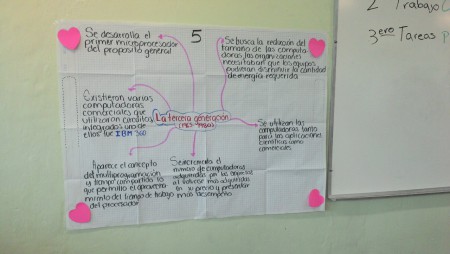 Se desarrolla el
primer microprocesador
del proposito general
5
Se busca la reducción del
tamaño de las computa-
doras, las organizaciones
necesitaban que los equipos
pudieran disminuir la cantidad
de energía requerida
Existieron varias
computadoras
comerciales que
utilizaron
integrados uno de
ellos fue IBM 360
La tercera generación
Se utilizan las
computadoras tanto
para las aplicaciones
científicas como
comerciales
Aparece el concepto
del multiprogramación
y tiempo compartido lo
que permitió el aprovecha
miento del tiempo de trabajo
del procesador
Se incrementa el
número de computadoras
adquiridas por las empresas
su precio y presentar
más desempeño
2 Trabajo
3ero Tareas